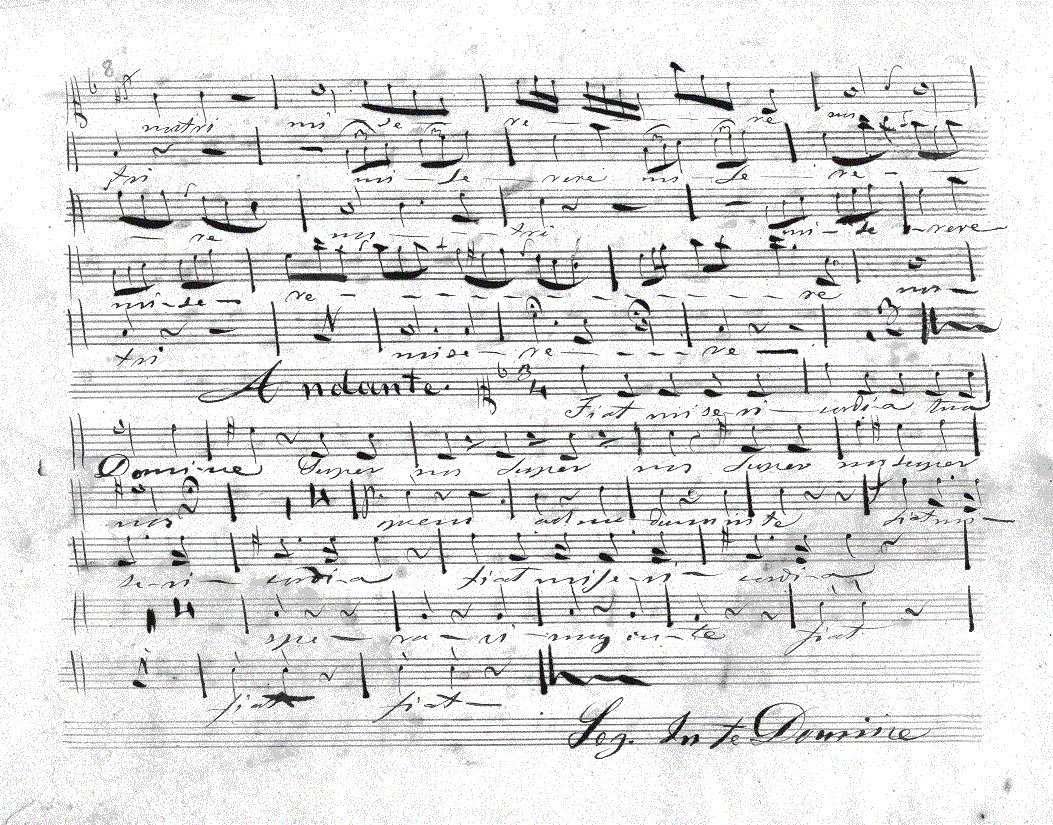 8
nostri mi se re re nos
tri mi - se - rere mi - se - re -
- re nos - - - - tri mi - se - rere
mi - se - re - - - - - - - - - re nos -
tri mise - re - - - - re
Andante. 3 4 Fiat mise - ri - cordia tua
Domine super nos super nos super nos super
nos quem ad mo dum in te fiat mi -
se - ri - cordi - a fiat mise - ri - cordi - a
4 spe - ra - vi - mus in - te fiat
fiat fiat -
Seg. In te Domine